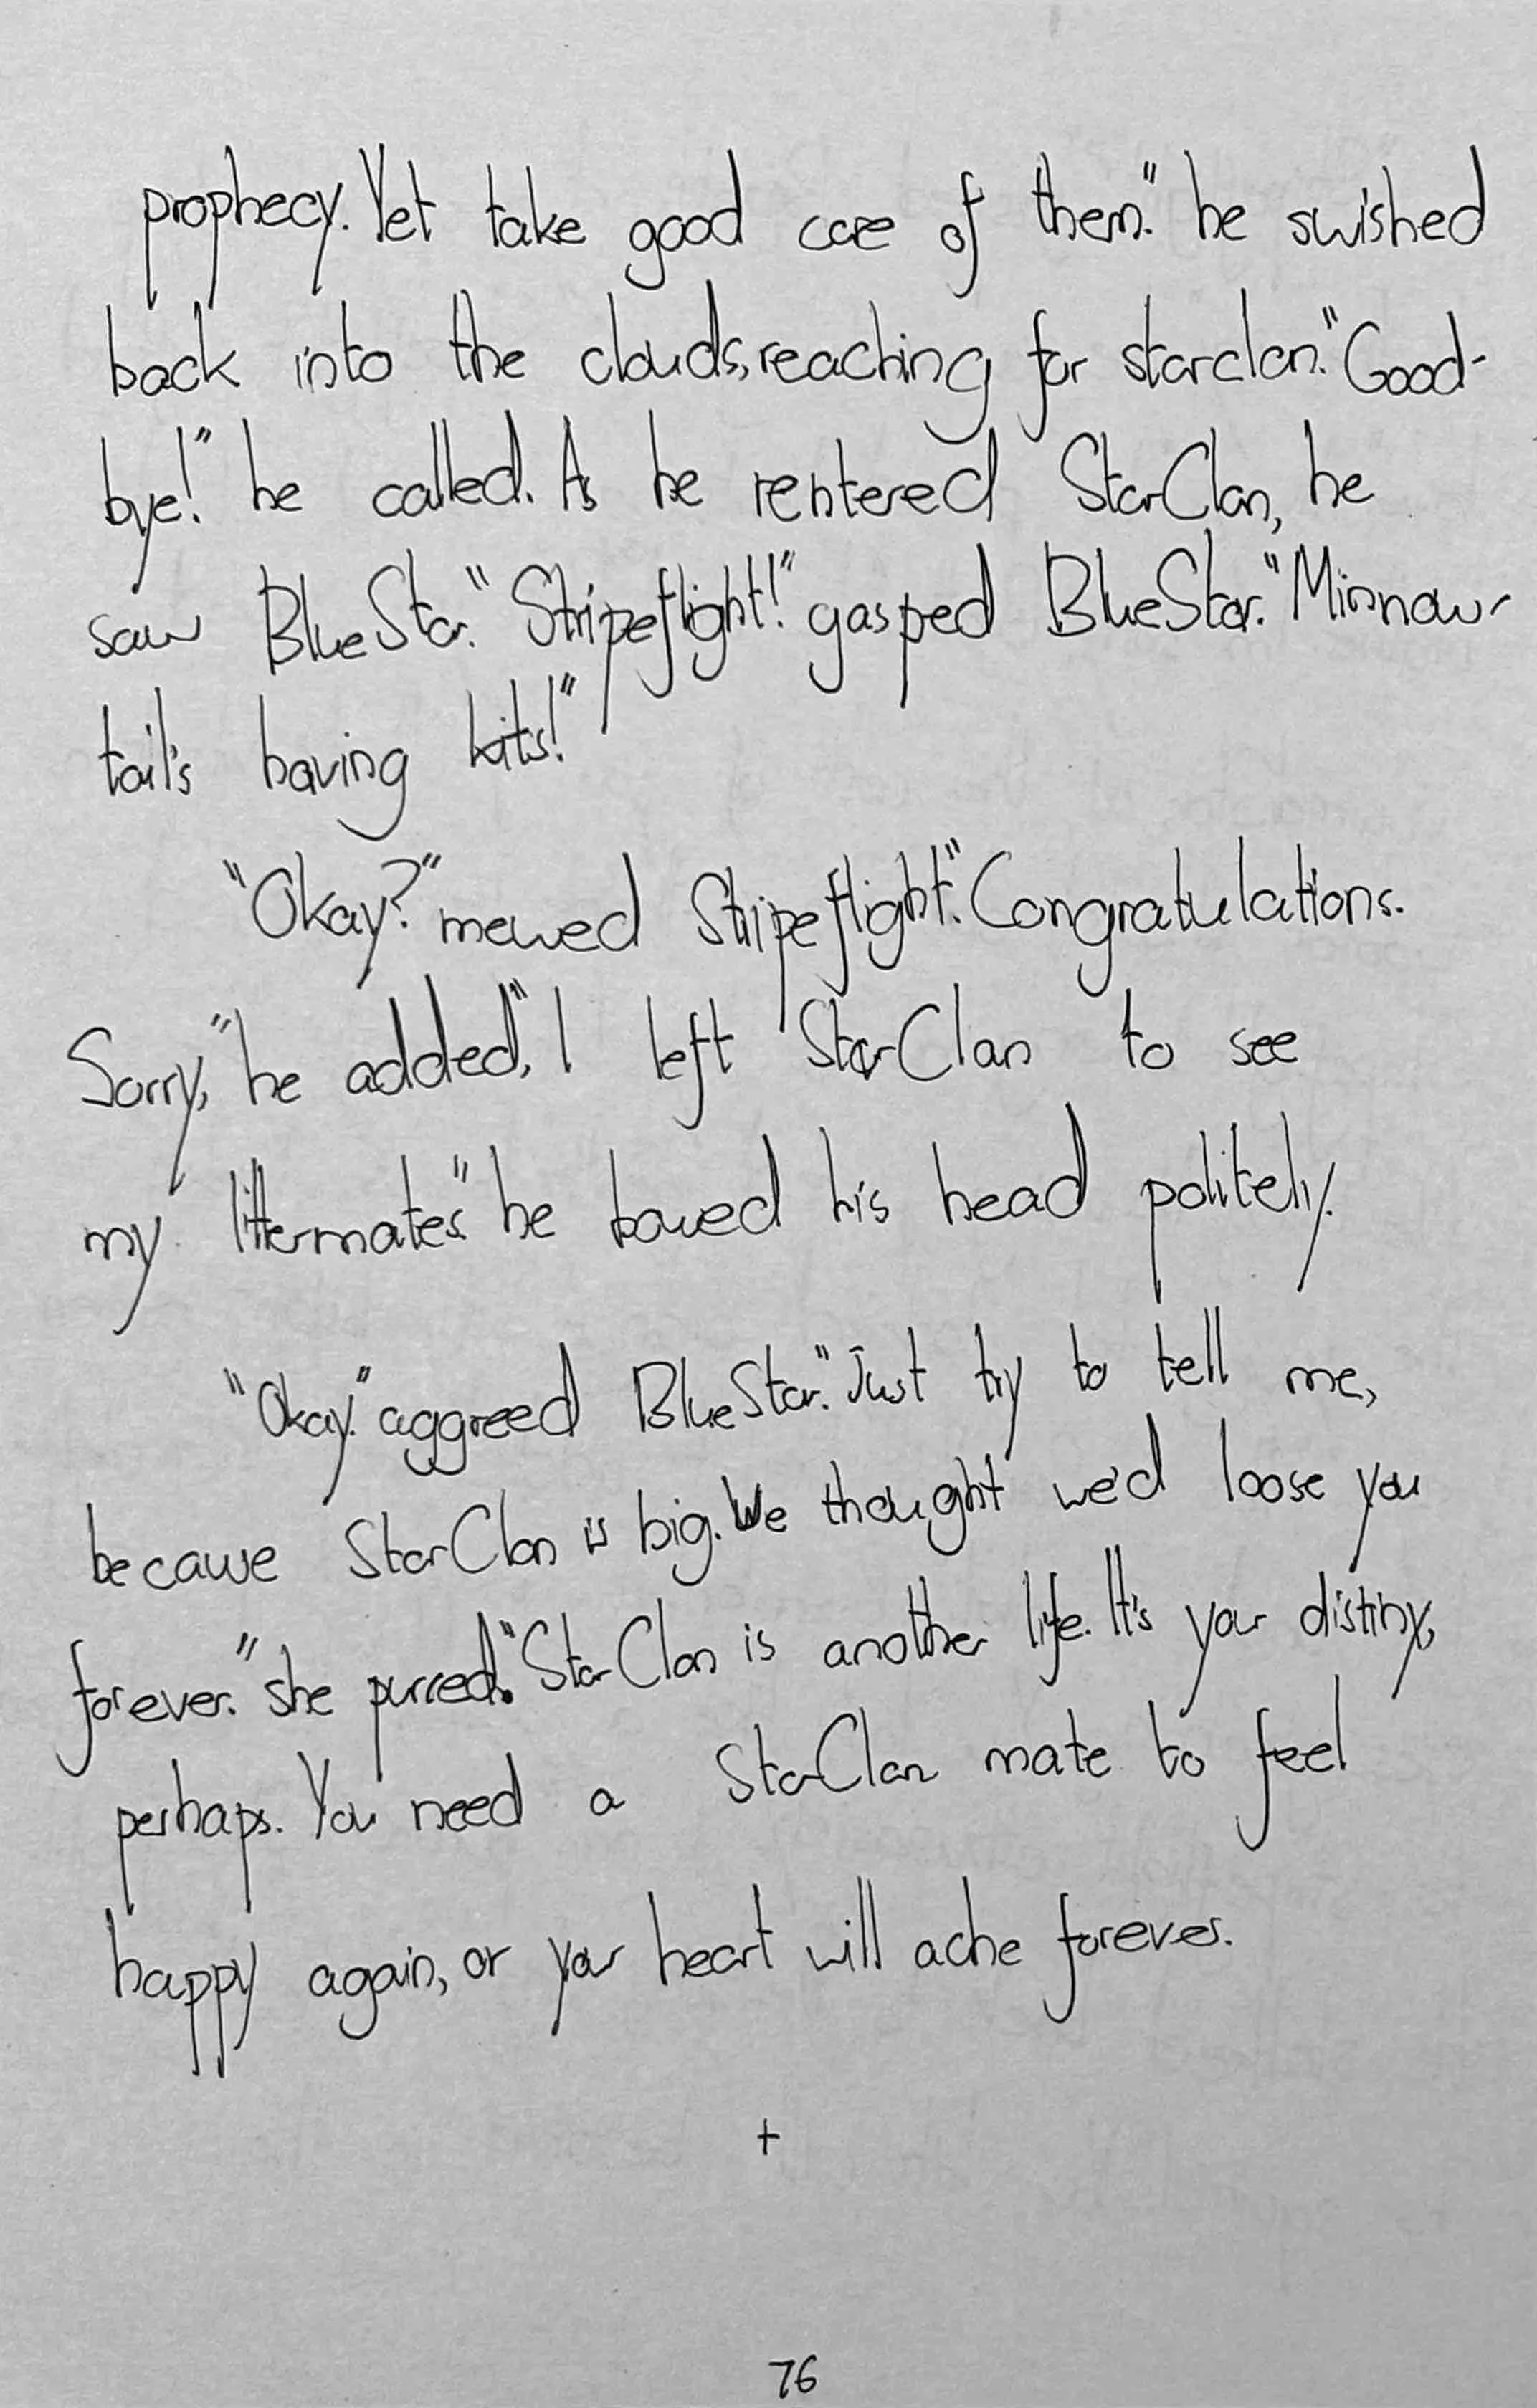 prophecy. Yet take good care of them." he swished
back into the clouds, reaching for starclan. "Good-
bye!" he called. As he rentered StarClan, he
saw BlueStar. "Stripeflight!" gasped BlueStar. "Minnow-
tail's having kits!"
"Okay?" mewed Stripeflight. "Congratulations.
Sorry," he added, "I left StarClan to see
my littermates." he bowed his head politely.
"Okay." aggreed BlueStar. "Just try to tell me,
because StarClan is big. We thought we'd loose you
forever." she purred. "StarClan is another life. It's your distiny,
perhaps. You need a StarClan mate to feel
happy again, or your heart will ache forever.
+
76